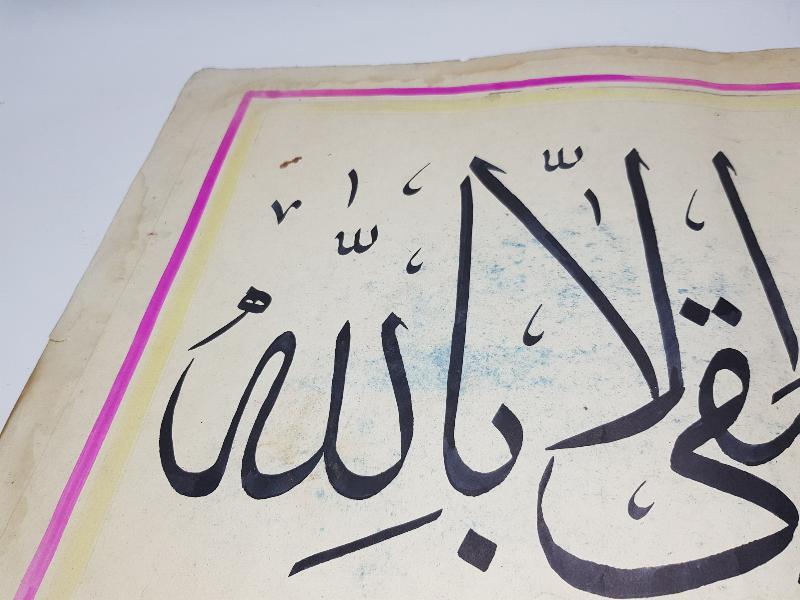 الا بالله